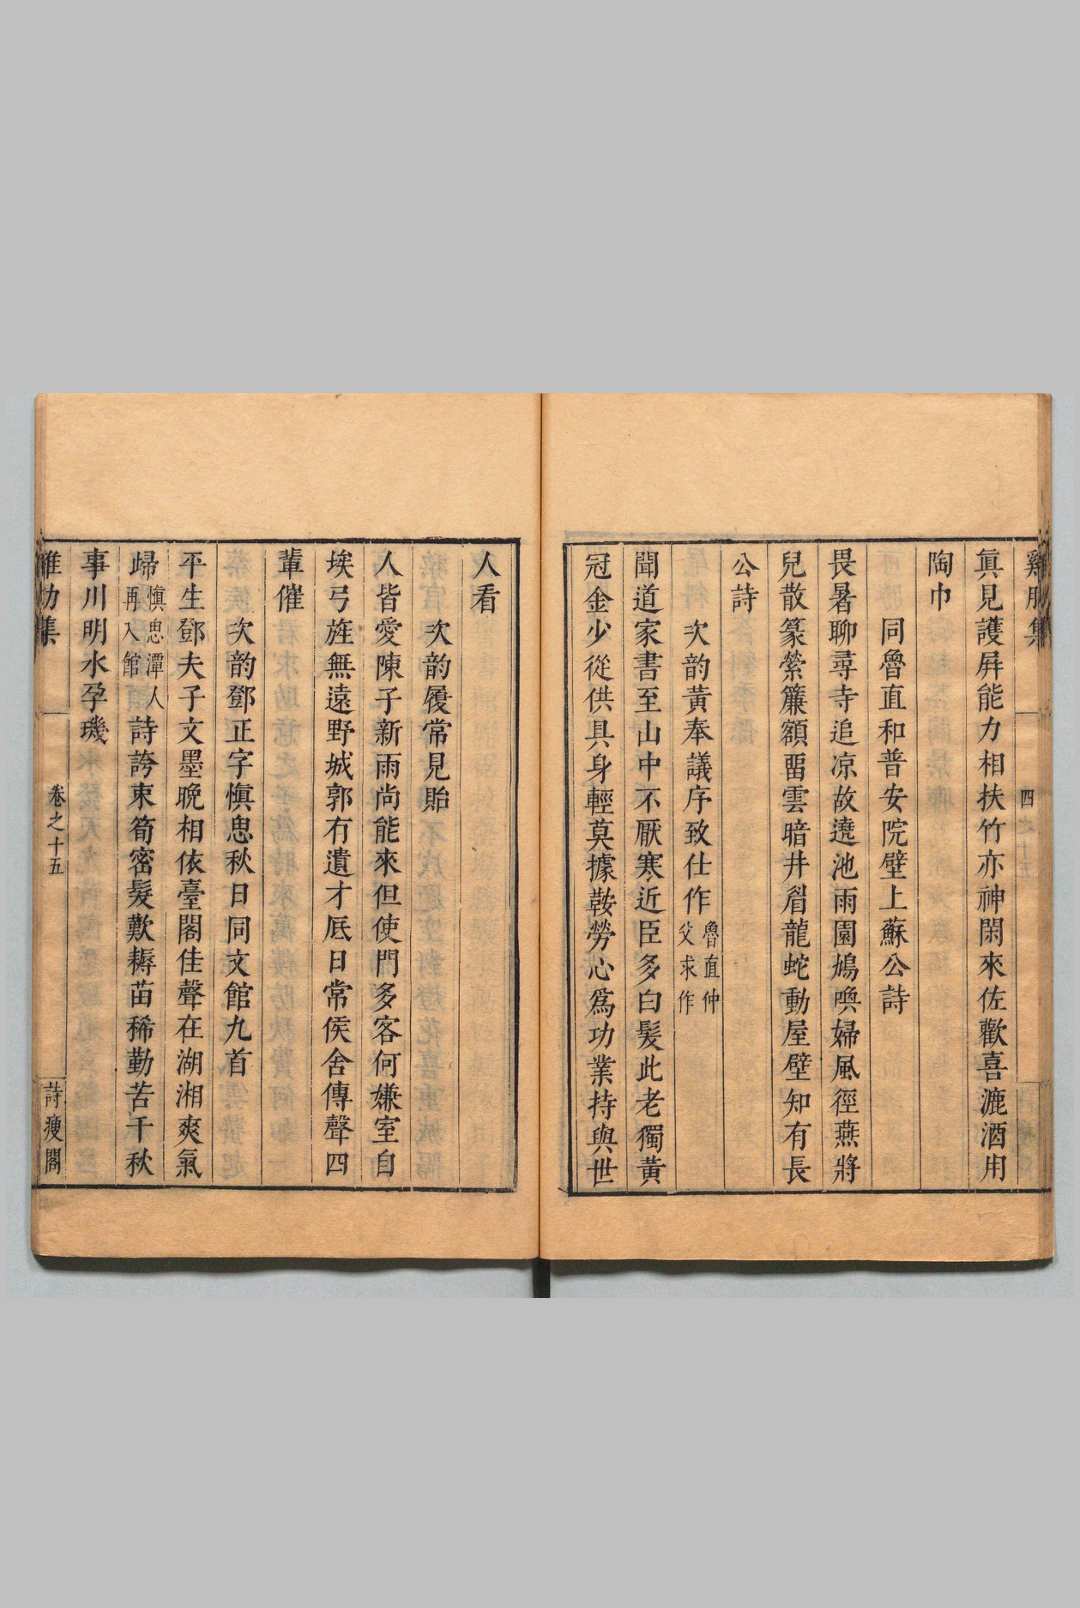 雞肋集
四
眞見護屛能力相扶竹亦神閑來佐歡喜漉酒用
陶巾
同魯直和普安院壁上蘇公詩
畏暑聊尋寺追凉故遶池雨園鳩喚婦風徑燕將
兒散篆縈簾額畱雲暗井眉龍蛇動屋壁知有長
公詩
次韵黄奉議序致仕作魯直仲
父求作
聞道家書至山中不厭寒近臣多白髮此老獨黄
冠金少從供具身輕莫據鞍勞心爲功業持與世
人看
次韵履常見貽
人皆愛陳子新雨尚能來但使門多客何嫌室自
埃弓旌無遠野城郭冇遺才厎日常侯舍傳聲四
輩催
次韵鄧正字愼思秋日同文館九首
平生鄧夫子文墨晩相依臺閣佳聲在湖湘爽氣
歸愼思潭人
再入館詩誇束筍密髮歎耨苗稀勤苦千秋
事川明水孕璣
卷之十五
詩瘦閣